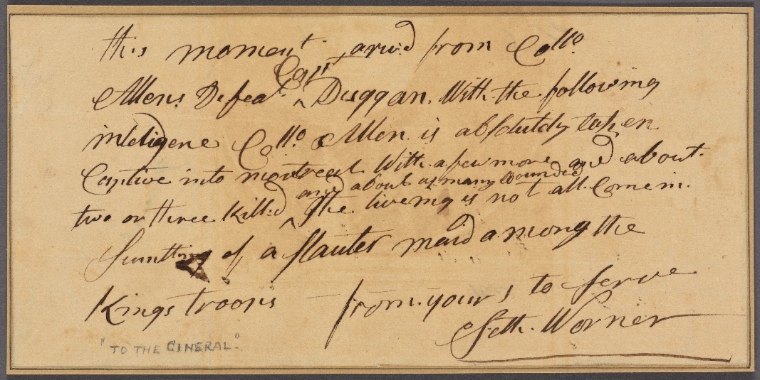 this moment arived from Collo
Allens Defeat Capt Duggan With the following
inteligene Collo Allen is absolutely taken
Captive into montreal With a few more and about
two or three killed and about as many wounded The liveing is not all Come in
Sumthing of a slauter maid among the
Kings troops from yours to serve
Seth Worner
"TO THE GINERAL."